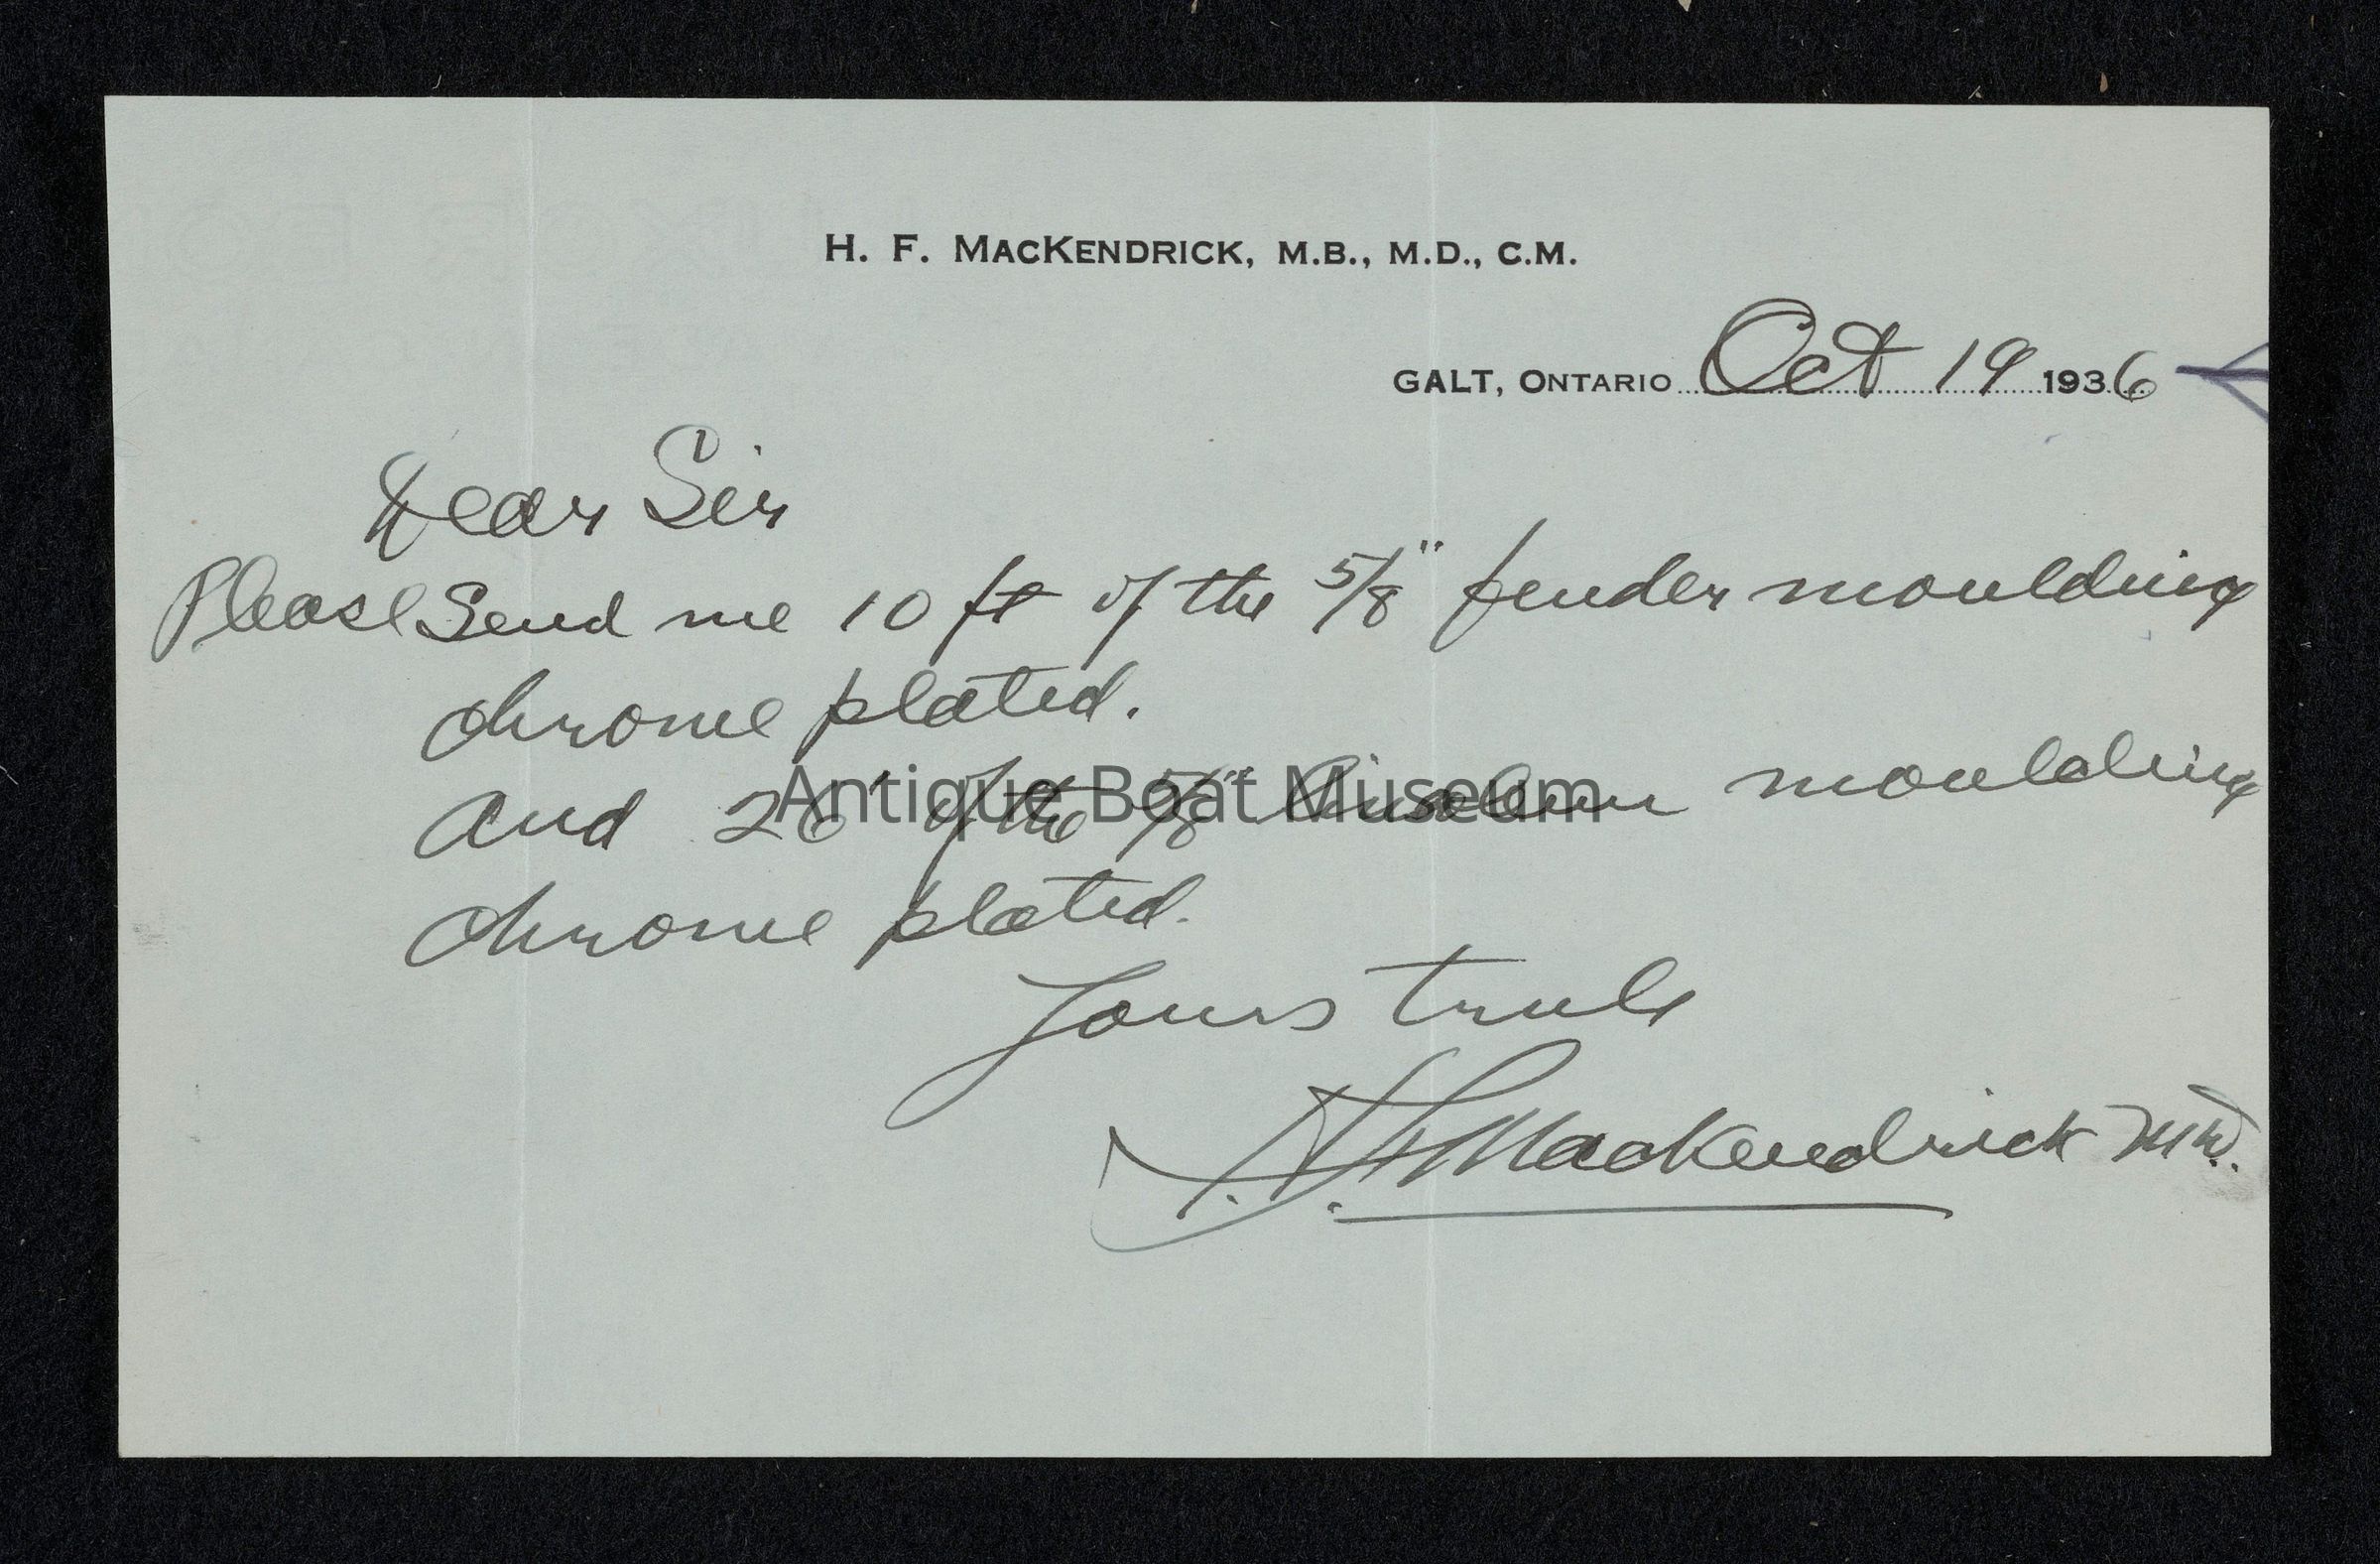 H. F. MACKENDRICK, M.B., M.D., C.M.
GALT, ONTARIO Oct 19 1936
Dear Sir
Please Send me 10 ft of the 5/8" fender moulding
chrome plated.
and 20' of the 5/8" moulding
Antique Boat Museum
chrome plated.
Yours truly
H. F. MacKendrick M.D.